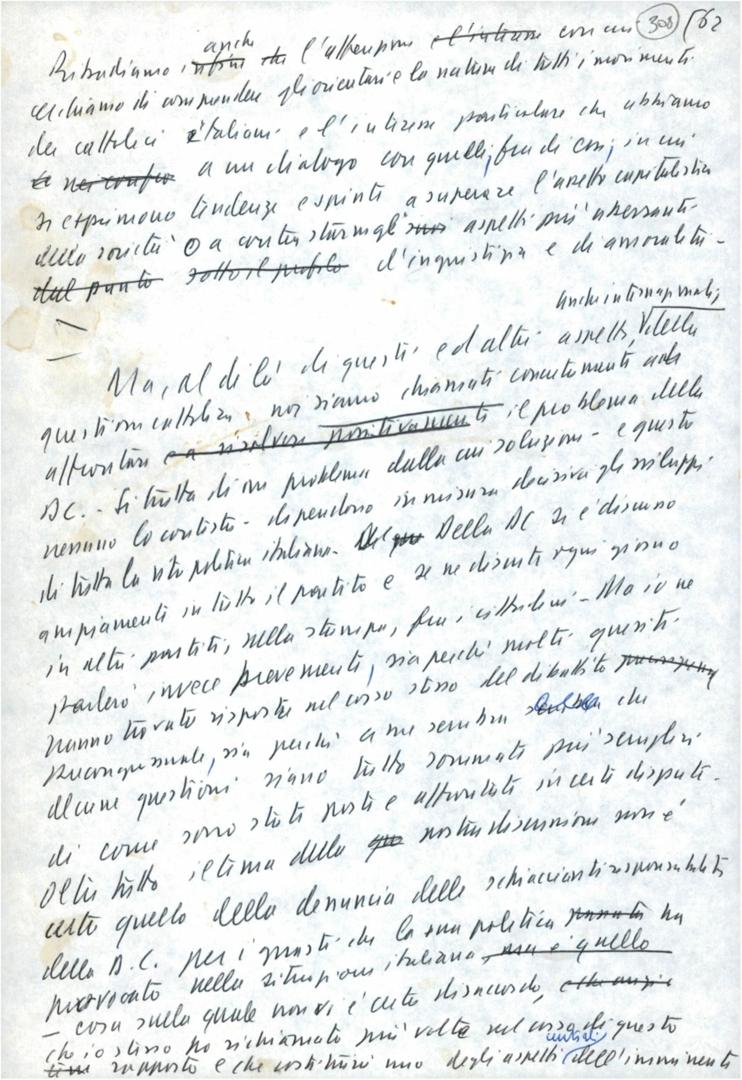 308 (62
anche
Ribadiamo infine che l'attenzione e l'interesse con cui
cerchiamo di comprendere gli orientamenti e la natura di tutti i movimenti
dei cattolici italiani e l'interesse particolare che abbiamo
a un dialogo con quelli, fra di essi, in cui
si esprimono tendenze e spinte a superare l'assetto capitalistico
della società o a contestarne gli suoi aspetti più aberranti
dal punto sotto il profilo d'ingiustizia e di amoralità -
anche internazionali,
Ma, al di là di questi ed altri aspetti, della
questione cattolica, noi siamo chiamati concretamente ad
affrontare e a risolvere positivamente il problema della
DC. - Si tratta di un problema dalla cui soluzione - e questo
nessuno lo contesta - dipendono in misura decisiva gli sviluppi
di tutta la vita politica italiana. Della DC si è discusso
ampiamente in tutto il partito e se ne discute ogni giorno
in altri partiti, nella stampa, fra i cittadini - Ma io ne
parlerò invece brevemente, sia perché molti quesiti
hanno trovato risposta nel corso stesso del dibattito
precongressuale, sia perché a me sembra che
alcune questioni siano tutto sommato più semplici
di come sono state poste e affrontate in certe dispute.
Oltre tutto il tema della nostra discussione non è
certo quello della denuncia delle schiaccianti responsabilità
della D.C. per i guasti che la sua politica ha
provocato nella situazione italiana, ma è quello
- cosa sulla quale non vi è certo disaccordo, che anzi
che io stesso ho richiamato più volte nel corso di questo
centrali
rapporto e che costituirà uno degli aspetti dell'imminente